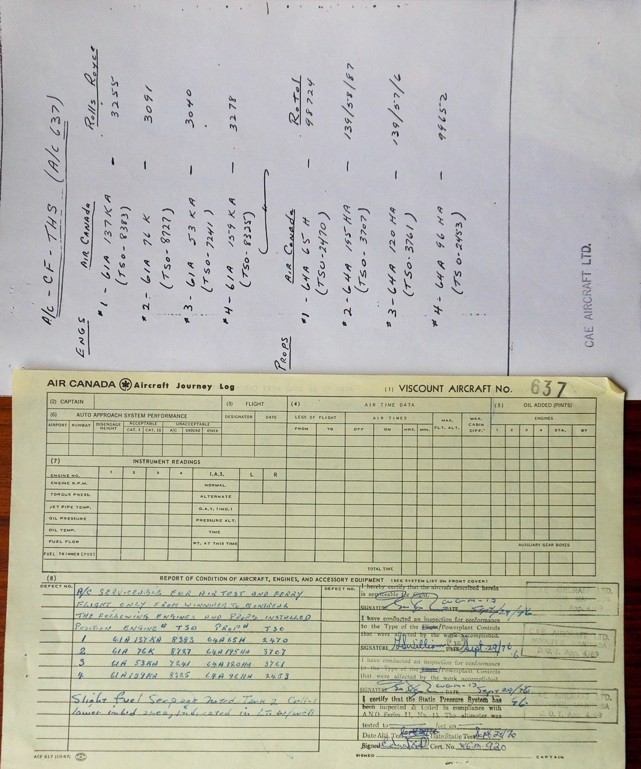 A/C - CF - THS (A/C 637)
ENGS AIR CANADA Rolls Royce
#1 - 61A 137 KA - 3255
(TSO - 8383)
#2 - 61A 76 K - 3091
(TSO - 8727)
#3 - 61A 53 KA - 3040
(TSO - 7241)
#4 - 61A 159 KA - 3278
(TSO - 8325)
PROPS AIR CANADA Rotol
#1 - 64A 65 H - 98724
(TSO - 2470)
#2 - 64A 195 HA - 139/58/87
(TSO - 3707)
#3 - 64A 120 HA - 139/57/6
(TSO - 3761)
#4 - 64A 96 HA - 99652
(TSO - 2453)
CAE AIRCRAFT LTD.
AIR CANADA Aircraft Journey Log (1) VISCOUNT AIRCRAFT No. 637
(2) CAPTAIN (3) FLIGHT (4) AIR TIME DATA (5) OIL ADDED (PINTS)
(6) AUTO APPROACH SYSTEM PERFORMANCE DESIGNATOR DATE LEGS OF FLIGHT AIR TIMES MAX. FLT. ALT. MAX. CABIN DIFF. ENGINES
AIRPORT RUNWAY DISENGAGE HEIGHT ACCEPTABLE UNACCEPTABLE FROM TO OFF ON HRS. MIN. 1 2 3 4 STN. BY
CAT. I CAT. II A/C GROUND OTHER
(7) INSTRUMENT READINGS
ENGINE NO. 1 2 3 4 I.A.S. L R
ENGINE R.P.M. NORMAL
TORQUE PRESS. ALTERNATE
JET PIPE TEMP. O.A.T. (IND.)
OIL PRESSURE PRESSURE ALT.
OIL TEMP. TIME
FUEL FLOW WT. AT THIS TIME AUXILIARY GEAR BOXES
FUEL TRIMMER (POS) TOTAL TIME
(8) REPORT OF CONDITION OF AIRCRAFT, ENGINES, AND ACCESSORY EQUIPMENT (SEE SYSTEM LIST ON FRONT COVER)
DEFECT NO. DEFECT NO.
A/C SERVICEABLE FOR AIR TEST AND FERRY
FLIGHT ONLY FROM WINNIPEG TO MONTREAL
THE FOLLOWING ENGINES AND PROPS INSTALLED
POSITION ENGINE# TSO PROP# TSO
61A 137KA 8383 64A65H 2470
2 61A 76K 8727 64A195HA 3707
3 61A 53KA 7241 64A120HA 3761
4 61A159KA 8325 64A96HA 2453
Slight fuel Seepage noted Tank 2
I hereby certify that the aircraft described herein
SIGNATURE DATE
I have conducted an inspection for conformance
to the Type of the Engine/Powerplant Controls
that were affected by the work accomplished.
SIGNATURE DATE Sept 29/76
I have conducted an inspection for conformance
to the Type of the Engine/Powerplant Controls
that were affected by the work accomplished.
SIGNATURE DATE
I certify that the Static Pressure System has
been inspected & tested in compliance with
tested to
Signed Cert. No.
SIGNED CAPTAIN